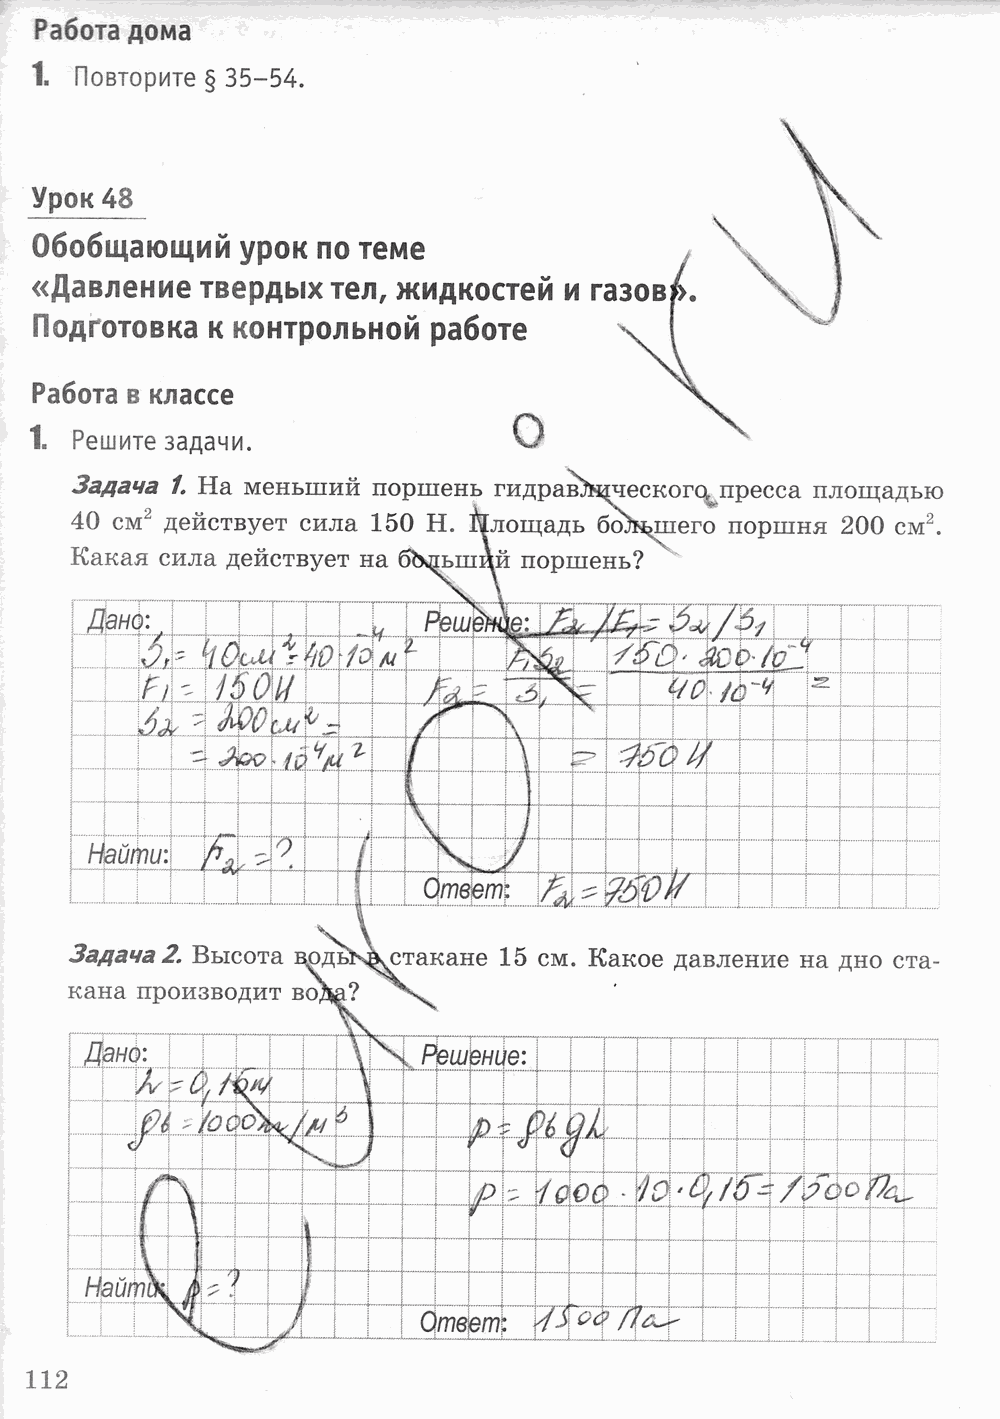 Работа дома
1. Повторите § 35–54.
Урок 48
Обобщающий урок по теме
«Давление твердых тел, жидкостей и газов».
Подготовка к контрольной работе
Работа в классе
1. Решите задачи.
Задача 1. На меньший поршень гидравлического пресса площадью
40 см² действует сила 150 Н. Площадь большего поршня 200 см².
Какая сила действует на больший поршень?
Дано:
S₁ = 40см² = 40·10⁻⁴м²
F₁ = 150Н
S₂ = 200см² =
= 200·10⁻⁴м²
Найти: F₂ = ?
Решение: F₂/F₁ = S₂/S₁
F₂ = F₁S₂/S₁ = 150·200·10⁻⁴/40·10⁻⁴ =
= 750Н
Ответ: F₂ = 750Н
Задача 2. Высота воды в стакане 15 см. Какое давление на дно ста-
кана производит вода?
Дано:
h = 0,15м
ρв = 1000кг/м³
Найти: p = ?
Решение:
p = ρв gh
p = 1000·10·0,15 = 1500Па
Ответ: 1500 Па
112